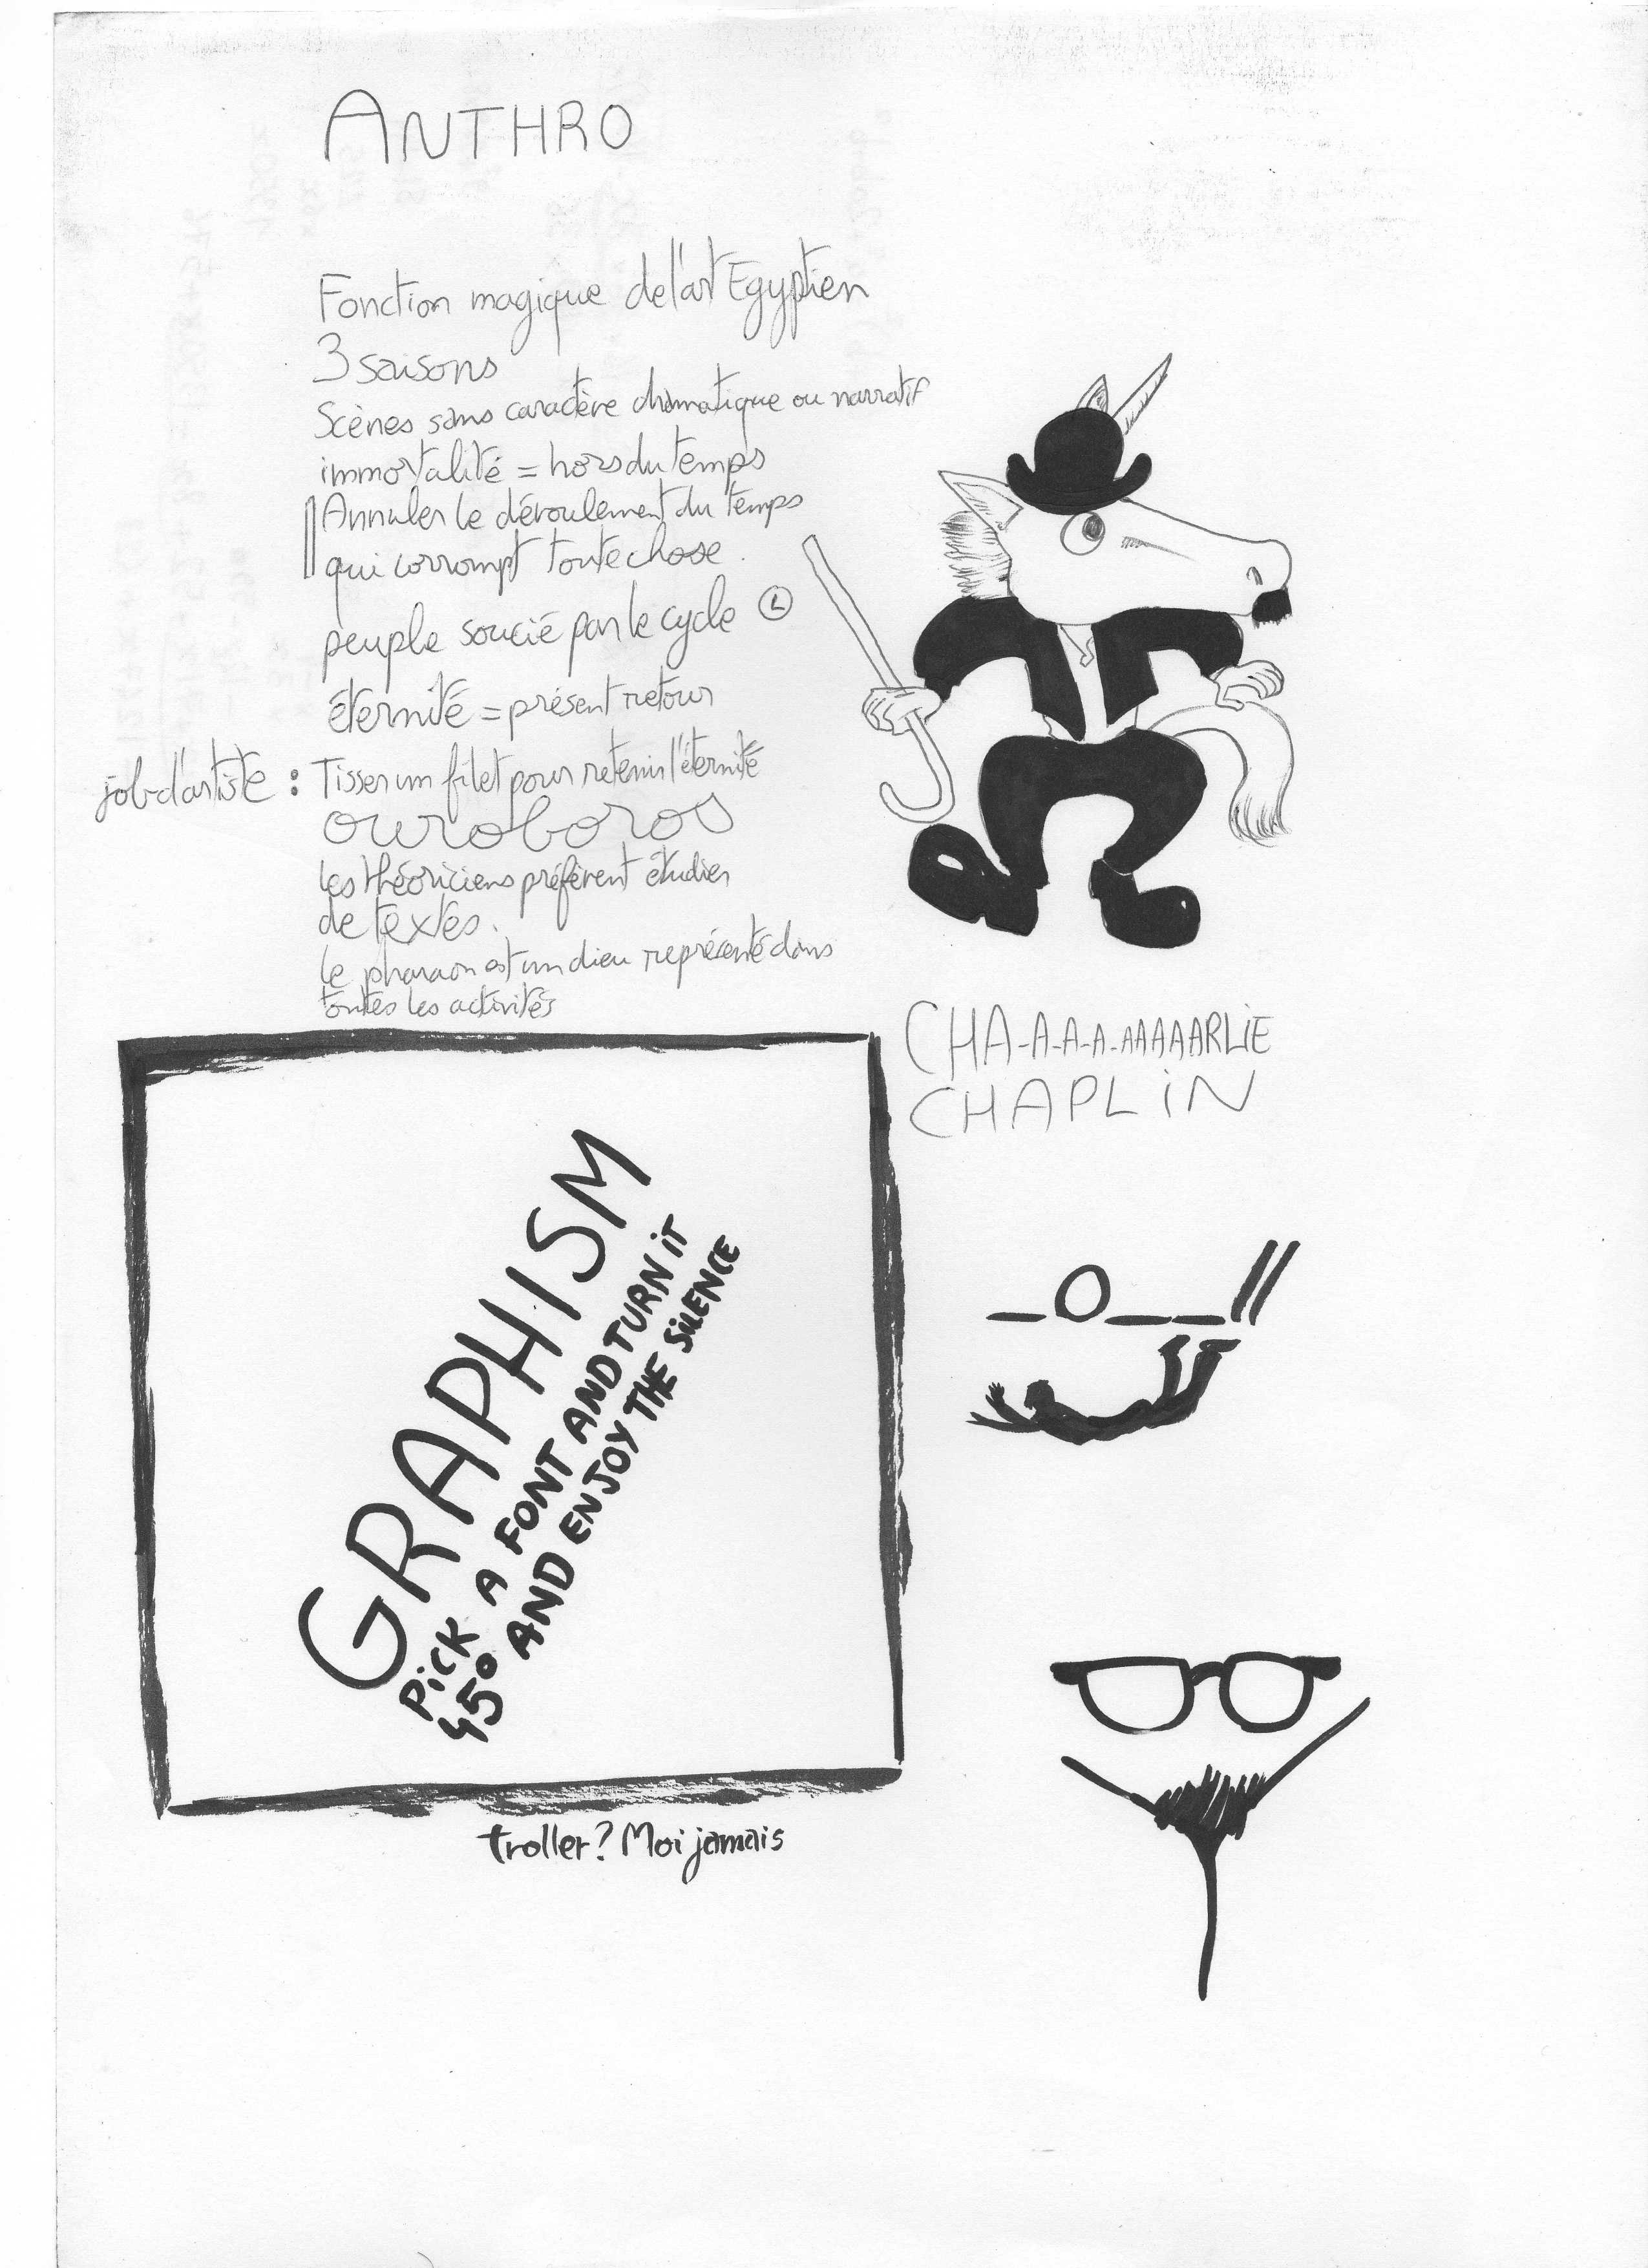 ANTHRO
Fonction magique de l'art Egyptien
3 saisons
Scènes sans caractère dramatique ou narratif
immortalité = hors du temps
Annuler le déroulement du temps
qui corrompt toute chose.
peuple soucié par le cycle
éternité = présent retour
job d'artiste : Tisser un filet pour retenir l'éternité
ouroboros
les théoriciens préfèrent étudier
de textes.
le pharaon est un dieu représenté dans
toutes les activités
CHA-A-A-A-AAAAARLiE
CHAPLiN
GRAPHISM
PiCK A FONT AND TURN iT
45° AND ENJOY THE SiLENCE
troller? Moi jamais